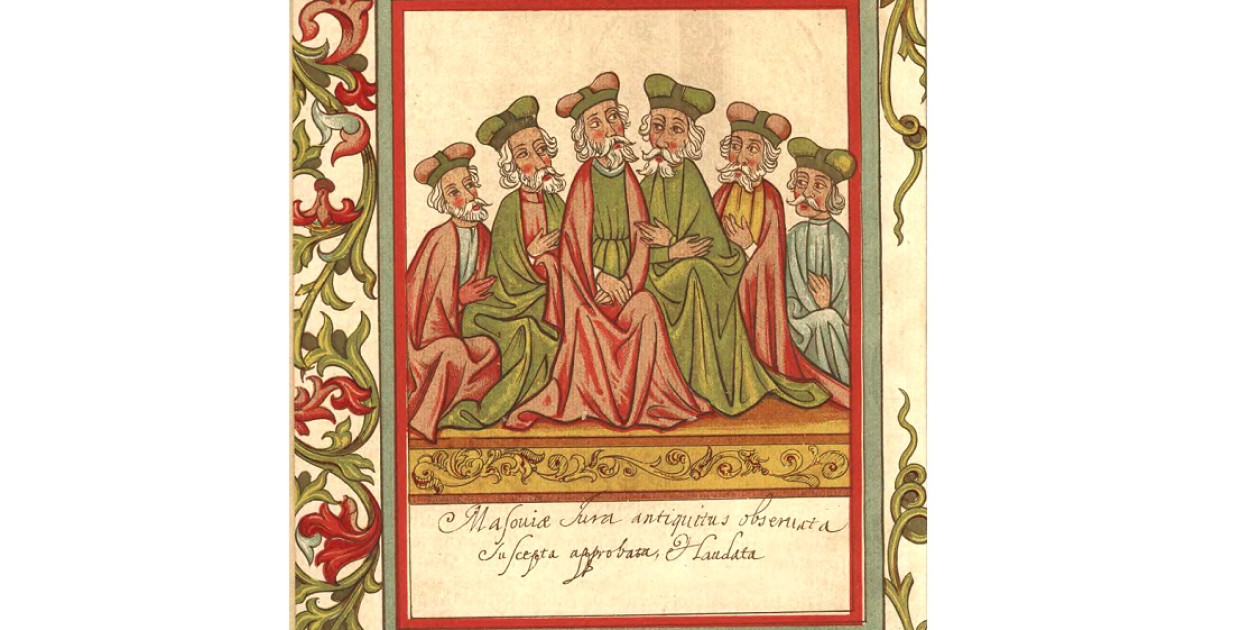 Masouiæ Iura antiquitus obseruata
Suscepta approbata, & laudata